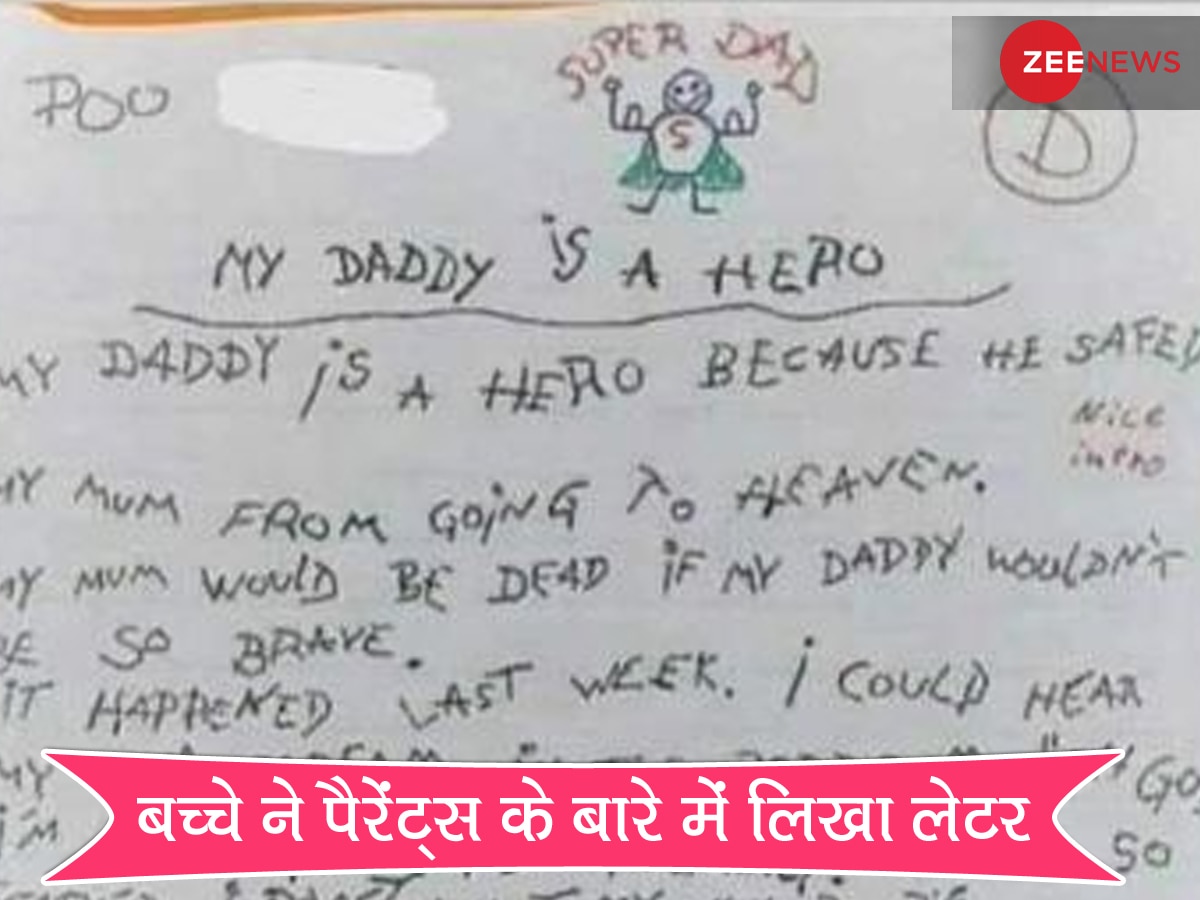 SUPER DAD
ZEENEWS
POO
S
D
MY DADDY iS A HERO
MY DADDY iS A HERO BECAUSE HE SAFED
Nice
intro
MY MUM FROM GOiNG TO HEAVEN.
MY MUM WOULD BE DEAD iF MY DADDY WOULDN'T
BE SO BRAVE.
IT HAPPENED LAST WEEK. i COULD HEAR
MY GO
बच्चे ने पैरेंट्स के बारे में लिखा लेटर
i'M SO